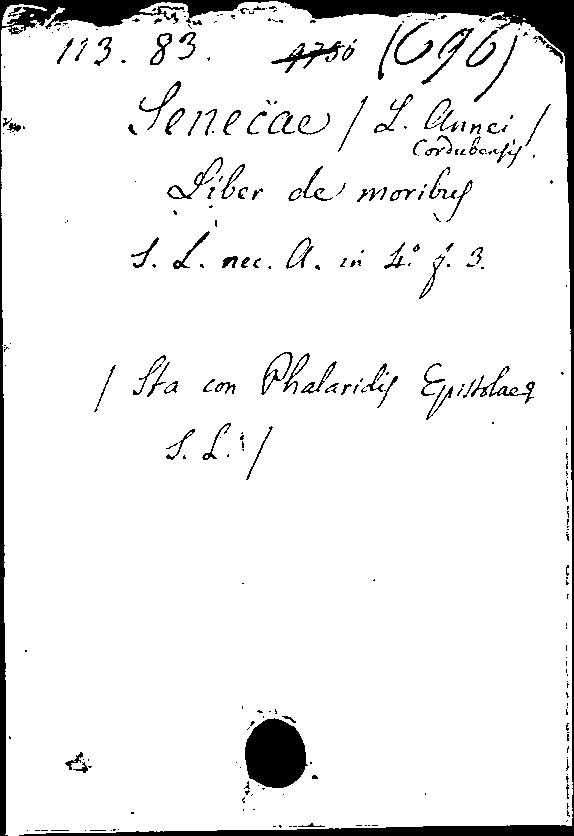 113. 83. 9786 (696)
Senecae / L. Annei /
Cordubensis.
Liber de moribus
S. L. nec. A. in 4.° f. 3.
/ Sta con Phalaridis Epistolae
S. L. /